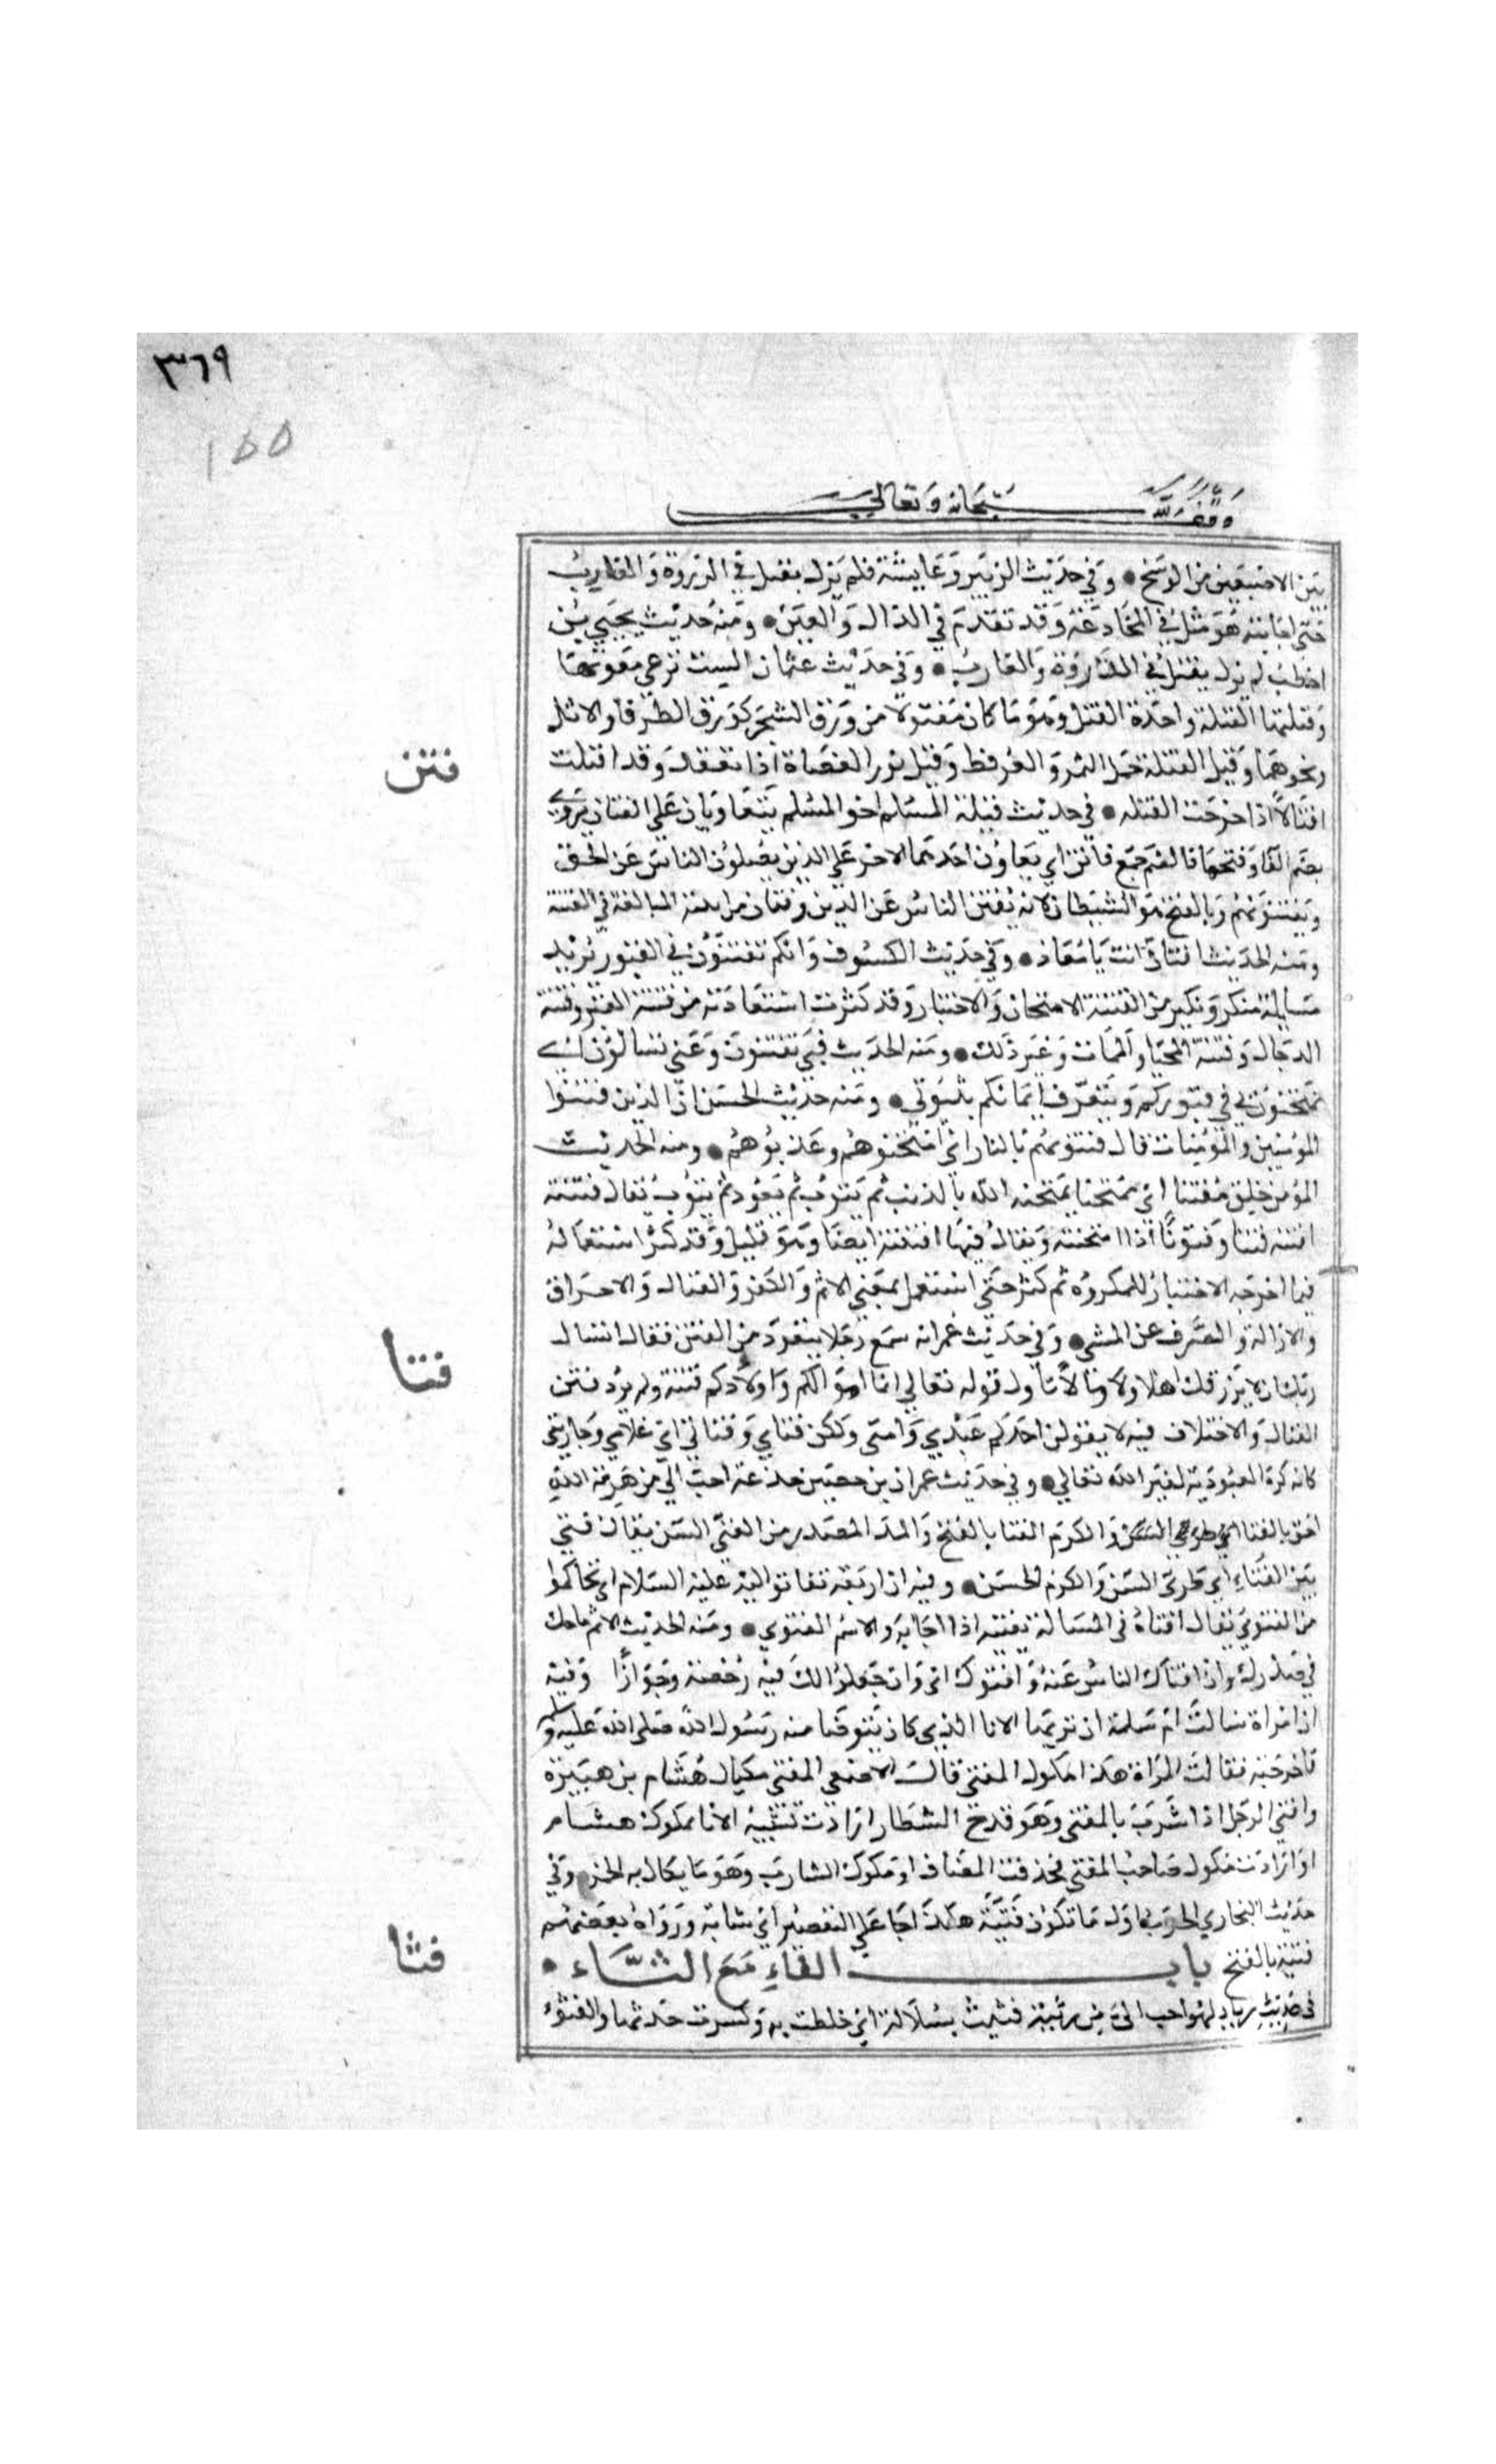 ٣٦٩
١٥٥
وقف لله سبحانه وتعالى
بين الاصبعين من الوسخ • وفي حديث الزبير وعايشة فلم يزل يفتل في الذروة والغارب
حتى اجابته هو مثل في المخادعة وقد تقدم في الذال والعين • ومنه حديث يحيي بن
اخطب لم يزل يفتل في الذروة والغارب • وفي حديث عثمان الست ترعي معوتها
وفتلتها الفتلة واحدة الفتل وهو ما كان مفتولا من ورق الشجر كورق الطرفا والاثل
ونحوهما وقيل الفتلة حمل السمر والعرفط وقيل نور العضاة اذا تعقد وقد افتلت
افتالا اذا اخرجت الفتله • في حديث قيلة المسلم اخو المسلم يتعاويان علي الفتان يروي
بضم الفا وفتحها فالضم جمع فاتن اي يعاون احدهما الاخر علي الذين يضلون الناس عن الحق
ويفتنونهم وبالفتح هو الشيطان لانه يفتن الناس عن الدين وفتان من ابنية المبالغة في الفتنة
ومنه الحديث افتان انت يا معاذ • وفي حديث الكسوف وانكم تفتنون في القبور يريد
مسايلة منكر ونكير من الفتنة الامتحان والاختبار وقد كثرت استعاذته من فتنة القبر وفتنة
الدجال وفتنة المحيا والممات وغير ذلك • ومنه الحديث فبي تفتنون وعني تسالون اي
تمتحنون بي في قبوركم ويتعرف ايمانكم بنبوتي • ومنه حديث الحسن ان الذين فتنوا
المؤمنين والمؤمنات قال فتنوهم بالنار اي امتحنوهم وعذبوهم • ومنه الحديث
المؤمن خلق مفتنا اي ممتحنا يمتحنه الله بالذنب ثم يتوب ثم يعود ثم يتوب يقال فتنته
افتنه فتنا وفتونا اذا امتحنته ويقال فيها افتنته ايضا وهو قليل وقد كثر استعماله
فيما اخرجه الاختبار للمكروه ثم كثر حتي استعمل بمعني الاثم والكفر والقتال والاحراق
والازالة والصرف عن الشي • وفي حديث عمر انه سمع رجلا يتعوذ من الفتن فقال اتسال
ربك ان لا يرزقك اهلا ولا مالا تاول قوله تعالي انما اموالكم واولادكم فتنة ولم يرد فتن
القتال والاختلاف فيه لا يقولن احدكم عبدي وامتي ولكن فتاي وفتاتي اي غلامي وجاريتي
كانه كره العبودية لغير الله تعالي • وفي حديث عمران بن حصين جذعة احب الي من هرمة الله
احق بالفتا والكرم الفتا بالفتح والمد المصدر من الفتي السن يقال فتي
بين الفتاء اي طري السن والكرم الحسن • وفيه ان اربعة تفاتوا اليه عليه السلام اي تحاكموا
من الفتوي يقال افتاه في المسالة يفتيه اذا اجابه والاسم الفتوي • ومنه الحديث الاثم ما حك
في صدرك وان افتاك الناس عنه وافتوك اي وان جعلوا لك فيه رخصة وجوازا وفيه
ان امراة سالت ام سلمة ان تريها الانا الذي كان يتوضا منه رسول الله صلى الله عليه وسلم
فاخرجته فقالت المراة هذا مكوك المفتي قال الاصمعي المفتي مكيال هشام بن هبيرة
وافتي الرجل اذا شرب بالمفتي وهو قدح الشطار ارادت تشبيه الانا بمكوك هشام
او ارادت مكوك صاحب المفتي فحذفت المضاف او مكوك الشارب وهو ما يكال به الخمر وفي
حديث البخاري الحرب اول ما تكون فتية هكذا جا علي التصغير اي شابة ورواه بعضهم
فتية بالفتح باب الفاء مع الثاء •
في حديث زياد لهو احب الي من رثيئة فثيت بسلالة اي خلطت به وكسرت حدتها والفثو
فتن
فتا
فثا